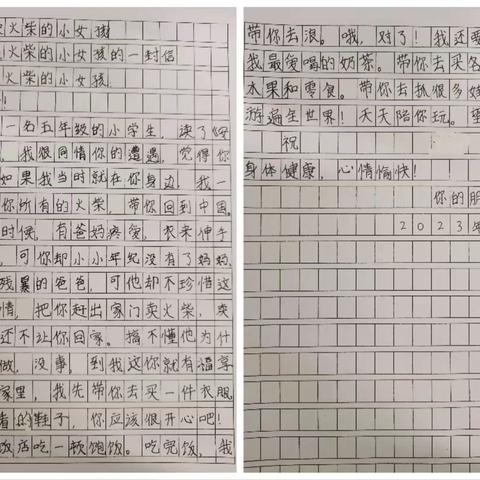 火柴的小女孩
火柴的小女孩的一封信
火柴的小女孩
！
一名五年级的小学生，读了
，我很同情你的遭遇，觉得你
如果我当时就在你身边，我一
你所有的火柴，带你回到中国。
时候，有爸妈疼爱，衣来伸手
，可你却小小年纪没有了妈妈，
残暴的爸爸，可他却不珍惜这
情，把你赶出家门卖火柴，卖
还不让你回家。搞不懂他为什
做。没事，到我这你就有福享
家里，我先带你去买一件衣服，
着的鞋子，你应该很开心吧！
饭店吃一顿饱饭。吃完饭，我
带你去浪。哦，对了！我还要
我最爱喝的奶茶。带你去买各
水果和零食。带你去抓很多娃
游遍全世界！天天陪你玩。
祝
身体健康，心情愉快！
你的朋
2023年